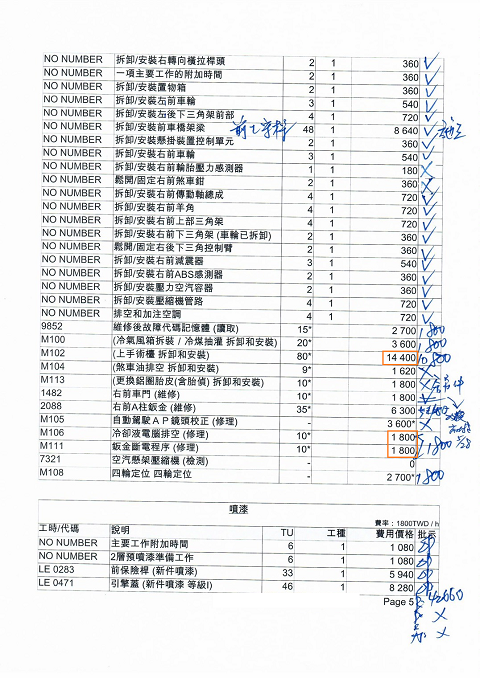 NO NUMBER 拆卸/安裝右轉向橫拉桿頭 2 1 360
NO NUMBER 一項主要工作的附加時間 2 1 360
NO NUMBER 拆卸/安裝置物箱 2 1 360
NO NUMBER 拆卸/安裝左前車輪 3 1 540
NO NUMBER 拆卸/安裝左後下三角架前部 4 1 720
NO NUMBER 拆卸/安裝前車橋架梁 48 1 8 640
NO NUMBER 拆卸/安裝懸掛裝置控制單元 2 1 360
NO NUMBER 拆卸/安裝右前車輪 3 1 540
NO NUMBER 拆卸/安裝右前輪胎壓力感測器 1 1 180
NO NUMBER 鬆開/固定右前煞車鉗 2 1 360
NO NUMBER 拆卸/安裝右前傳動軸總成 4 1 720
NO NUMBER 拆卸/安裝右前羊角 4 1 720
NO NUMBER 拆卸/安裝右前上部三角架 4 1 720
NO NUMBER 拆卸/安裝右前下三角架 (車輪已拆卸) 2 1 360
NO NUMBER 鬆開/固定右後下三角控制臂 2 1 360
NO NUMBER 拆卸/安裝右前減震器 3 1 540
NO NUMBER 拆卸/安裝右前ABS感測器 2 1 360
NO NUMBER 拆卸/安裝壓力空汽容器 2 1 360
NO NUMBER 拆卸/安裝壓縮機管路 4 1 720
NO NUMBER 排空和加注空調 4 1 720
9852 維修後故障代碼記憶體 (讀取) 15* 2 700 1,800
M100 (冷氣風箱拆裝 / 冷煤抽灌 拆卸和安裝) 20* 3 600 1,800
M102 (上手術檯 拆卸和安裝) 80* 14 400 10,800
M104 (煞車油排空 拆卸和安裝) 9* 1 620
M113 (更換鋁圈胎皮(含胎偵) 拆卸和安裝) 10* 1 800
1482 右前車門 (維修) 10* 1 800
2088 右前A柱鈑金 (維修) 35* 6 300
M105 自動駕駛ＡＰ鏡頭校正 (修理) - 3 600*
M106 冷卻液電腦排空 (修理) 10* 1 800*
M111 鈑金斷電程序 (修理) 10* 1 800 1,800
7321 空汽懸架壓縮機 (檢測) - 0
M108 四輪定位 四輪定位 - 2 700* 1,800
噴漆
費率：1800TWD / h
工時/代碼 說明 TU 工種 費用價格 批示
NO NUMBER 主要工作附加時間 6 1 1 080
NO NUMBER 2層預噴漆準備工作 6 1 1 080
LE 0283 前保險桿 (新件噴漆) 33 1 5 940
LE 0471 引擎蓋 (新件噴漆 等級I) 46 1 8 280
Page 5